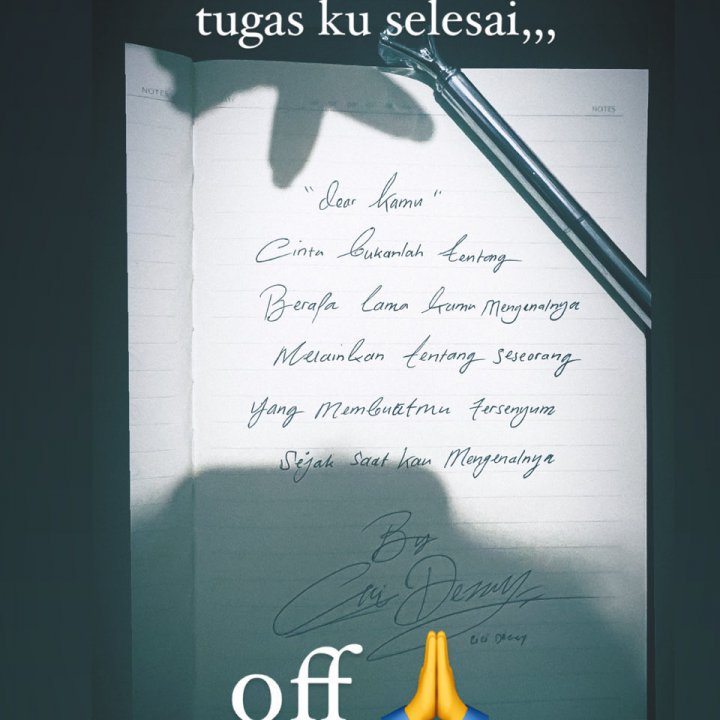 tugas ku selesai,,,
NOTES
NOTES
"dear kamu"
Cinta bukanlah tentang
Berapa lama kamu Mengenalnya
Melainkan tentang seseorang
Yang Membuatmu Tersenyum
Sejak saat kau Mengenalnya
By
off 🙏